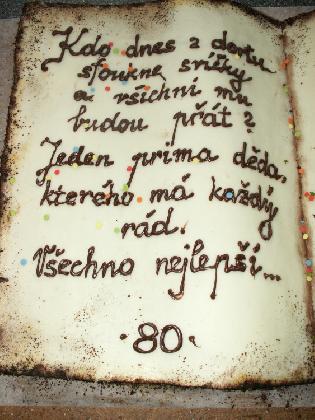 Kdo dnes z dortu
sfoukne svíčky
a všichni mu
budou přát?
Jeden prima děda,
kterého má každý
rád.
Všechno nejlepší...
·80·